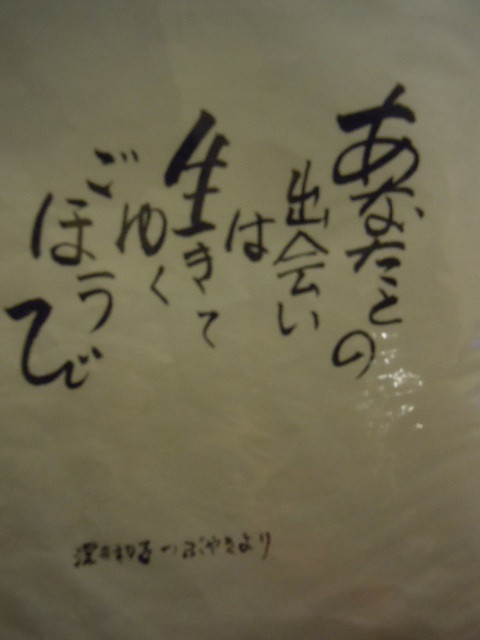 あなたとの
出会い
は
生きて
ゆく
ご
ほうび
つぶやきより